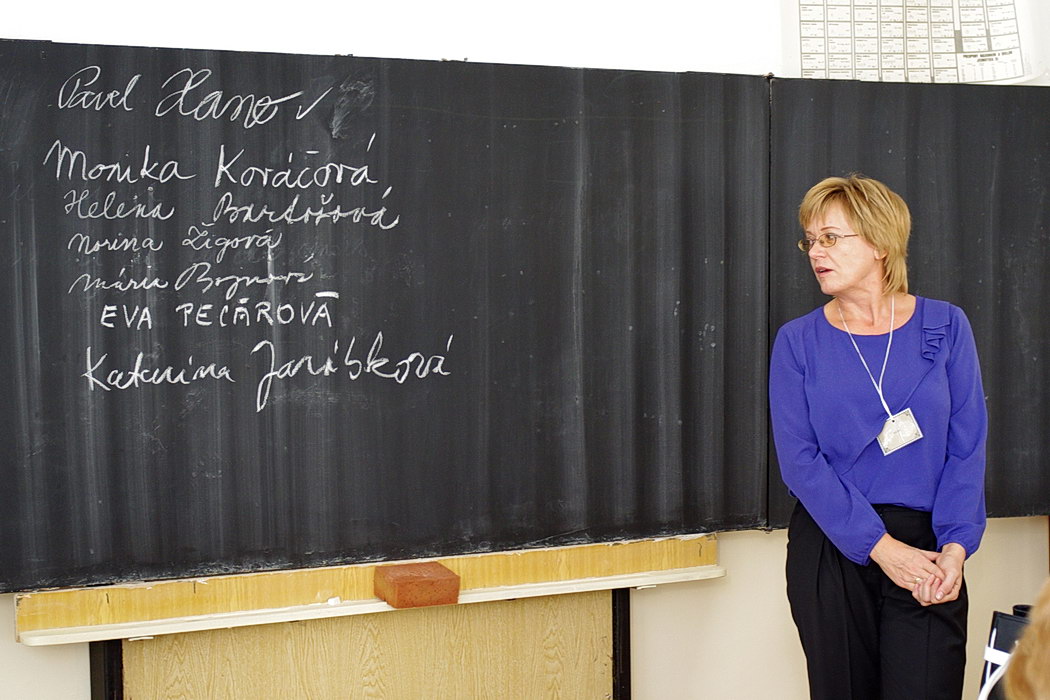 Pavel Hano ✓
Monika Kováčová
Helena Bartošová
Norina Žigová
Mária
EVA PECÁROVÁ
Katarina Jarábková